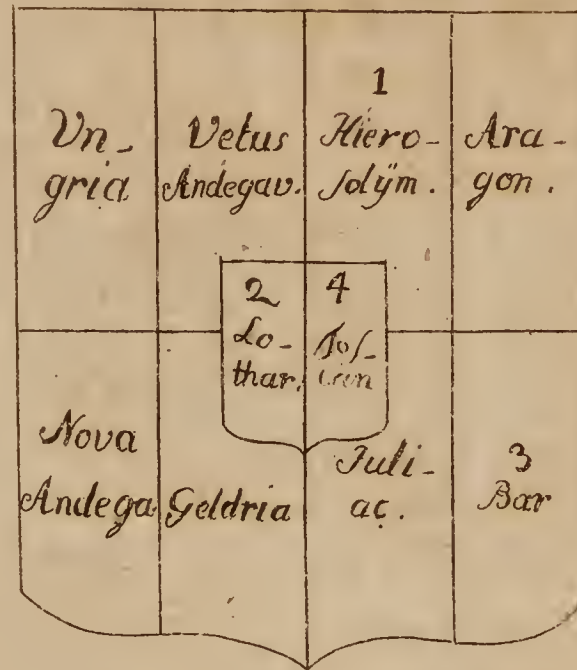 Vn-
gria
Vetus
Andegav.
1
Hiero-
ſolÿm.
Ara-
gon.
2
Lo-
thar.
4
Toſ-
can
Nova
Andega
Geldria
Iuli-
aç.
3
Bar